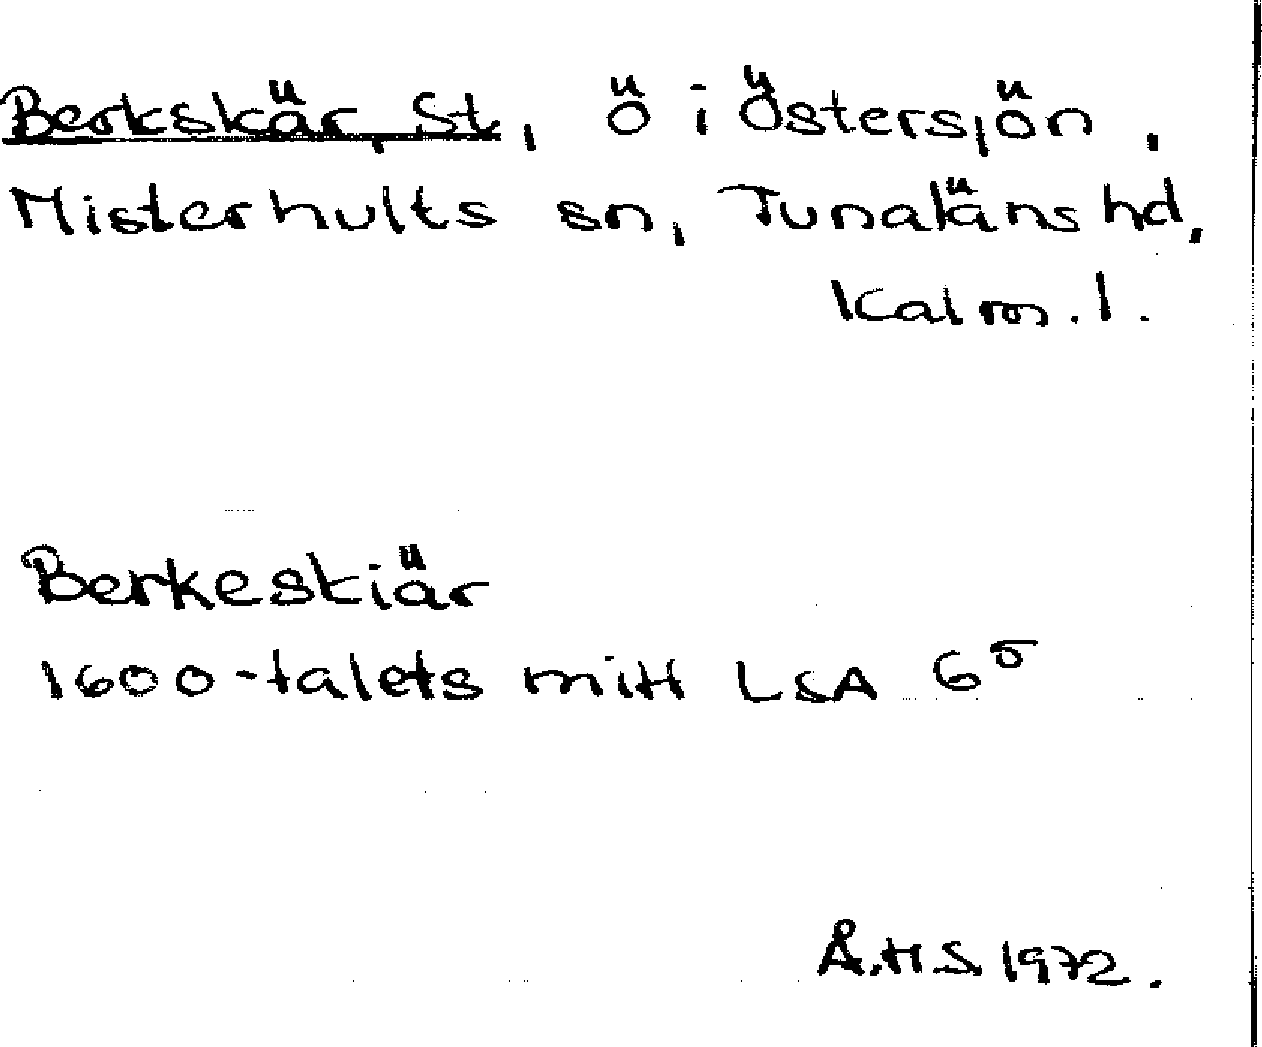 Berkskär, St, ö i Östersjön,
Misterhults sn, Tunaläns hd,
Kalm. l.
Berkeskiär
1600-talets mitt LSA G⁵
Å.H.S. 1972.